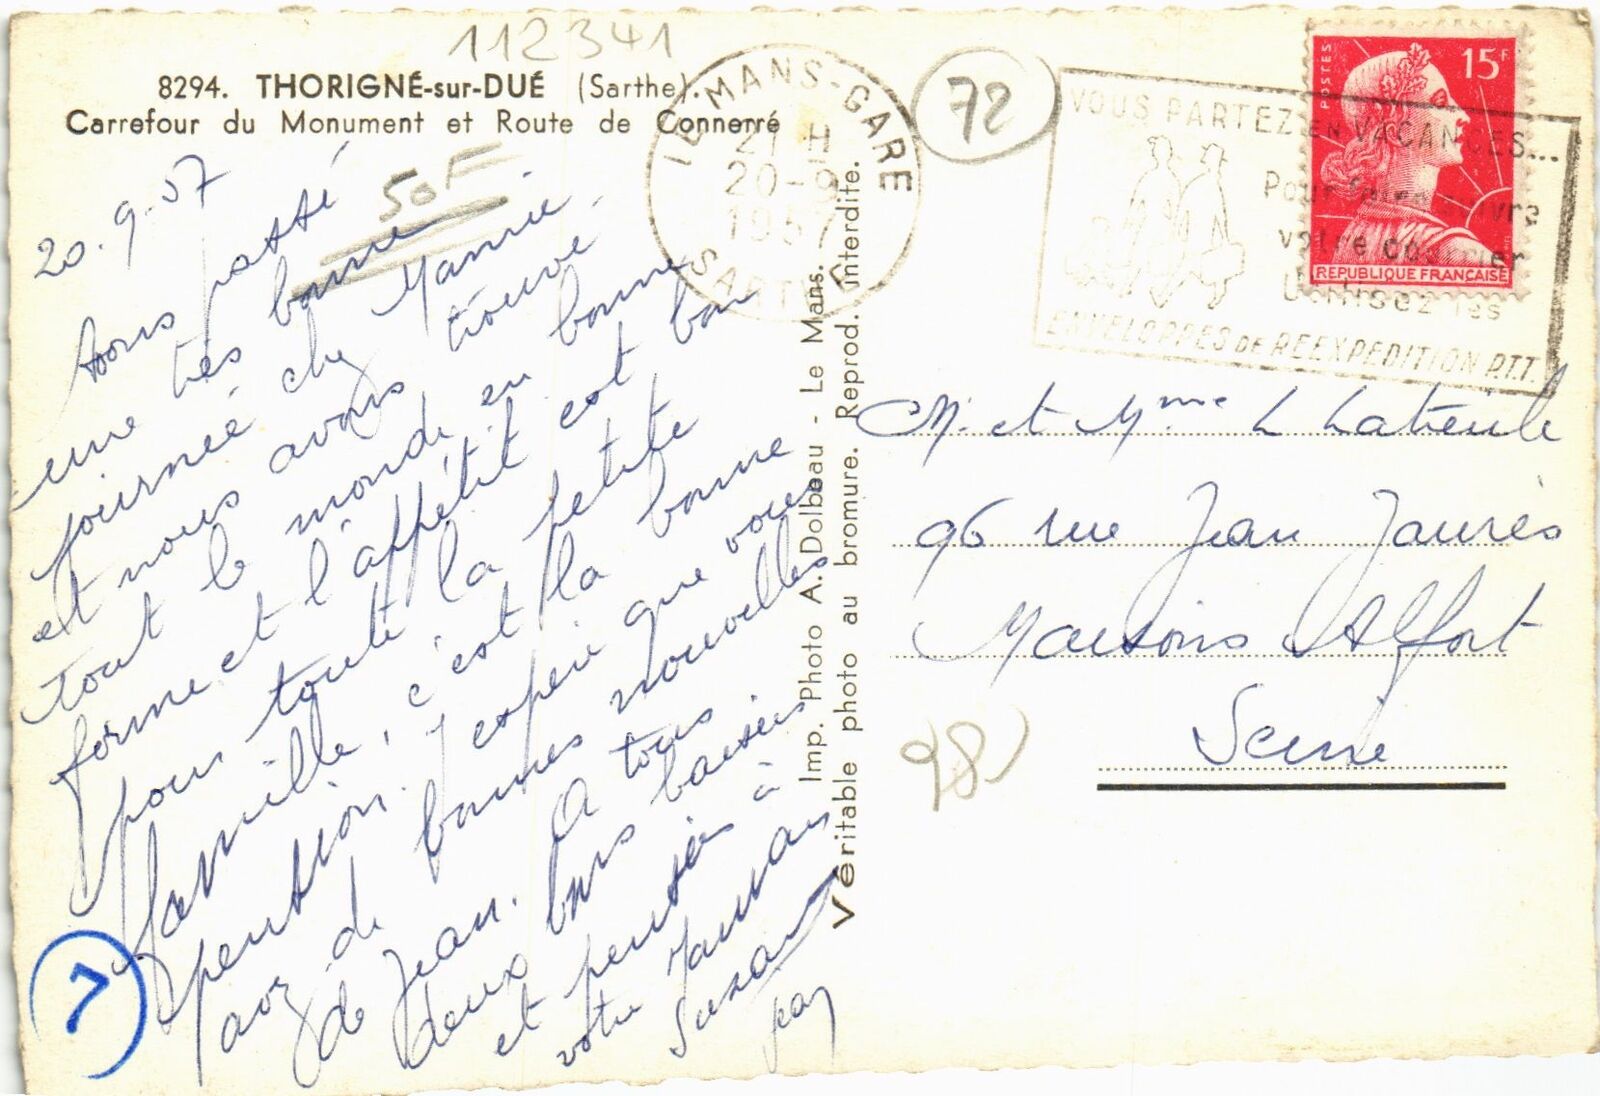 112341
8294. THORIGNÉ-sur-DUÉ (Sarthe).
Carrefour du Monument et Route de Connerré
50F
20.9.57
Avons passé
une très bonne
journée chez Mamie.
et nous avons trouvé
tout le monde en bonne
forme et l'appétit est bon
pour toute la petite
famille, c'est la bonne
pension. J'espère que vous
avez de bonnes nouvelles
de Jean. A tous
deux bons baisers
et pensées à
votre Maman
Suzanne
7
Imp. Photo A. Dolbeau - Le Mans.
Véritable photo au bromure. Reprod. interdite.
LE MANS-GARE
21 H
20-9
1957
SARTHE
72
VOUS PARTEZ EN VACANCES...
Pour faire suivre
votre courrier
Utilisez les
ENVELOPPES DE REEXPEDITION P.T.T.
POSTES
15F
REPUBLIQUE FRANÇAISE
M. et Mme L Latreille
96 rue Jean Jaurès
Maisons Alfort
Seine
28